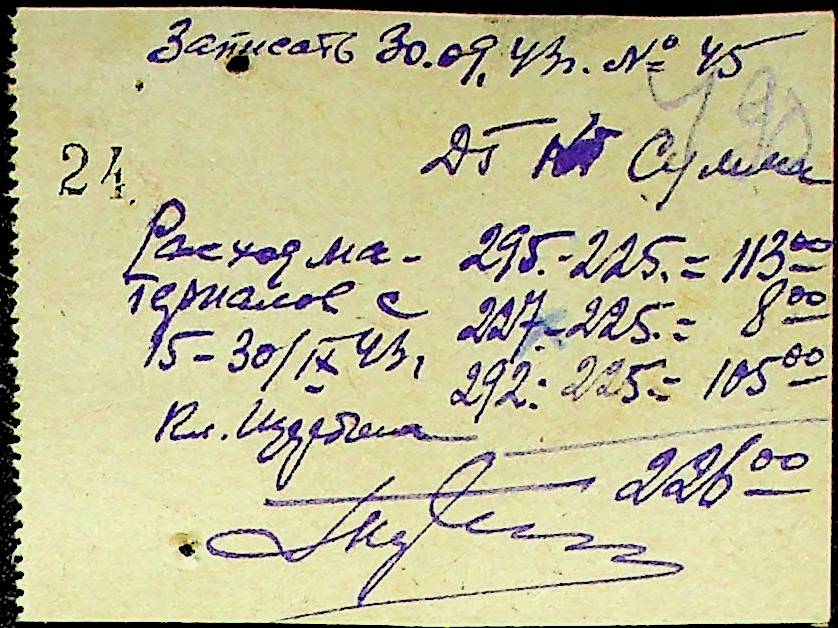 Записать 30.09.43г. № 45
490
24.
Дт Кт Сумма
Расход ма- 295.-225.= 113 00
териалов с 227.-225.= 8 00
15-30/IX 43г. 292.-225.= 105 00
226 00